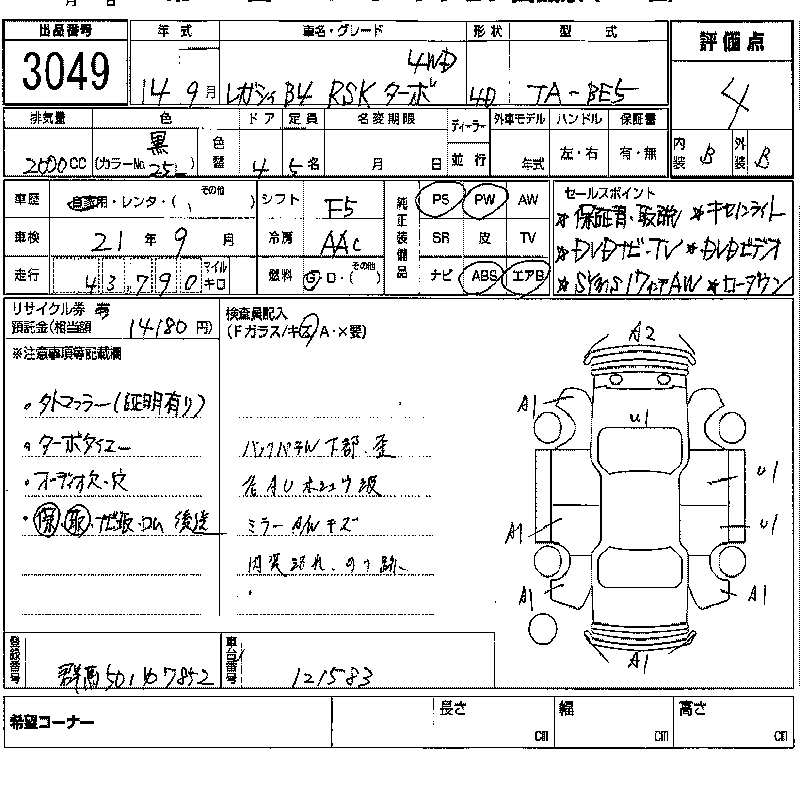 出品番号 年式 車名・グレード 形状 型式 評価点
3049 14 9月 レガシィ B4 RSK ターボ 4WD 4D TA-BE5 4
排気量 色 ドア 定員 名変期限 ディーラー 外車モデル ハンドル 保証書
2000CC 黒 (カラーNo. 25 色替 4 5名 月 日 並行 年式 左・右 有・無 内装 B 外装 B
車歴 自家用・レンタ・( その他 ) シフト F5 純正装備品 PS PW AW セールスポイント
★保証書・取説 ★キセノンライト
車検 21年 9月 冷房 AAC SR 皮 TV
★DVDナビ・TV ★DVDビデオ
走行 43,790 マイル キロ 燃料 G・D・( その他 ) ナビ ABS エアB
AW ★ローダウン
リサイクル券
預託金(相当額 14180円)
検査員記入
(Fガラス/キズ・A・×要)
※注意事項等記載欄
・タトマフラー(証明有り)
・ターボタイマー
・オーディオ欠・穴
・保・取・ナビ取・ロム 後送
バックパネル下部・歪
ミラー A/W キズ
内装汚れ、
A2
A1
U1
U1
A1
U1
A1
A1
A1
登録番号 群馬501 7852 車台番号 121583
希望コーナー 長さ cm 幅 cm 高さ cm